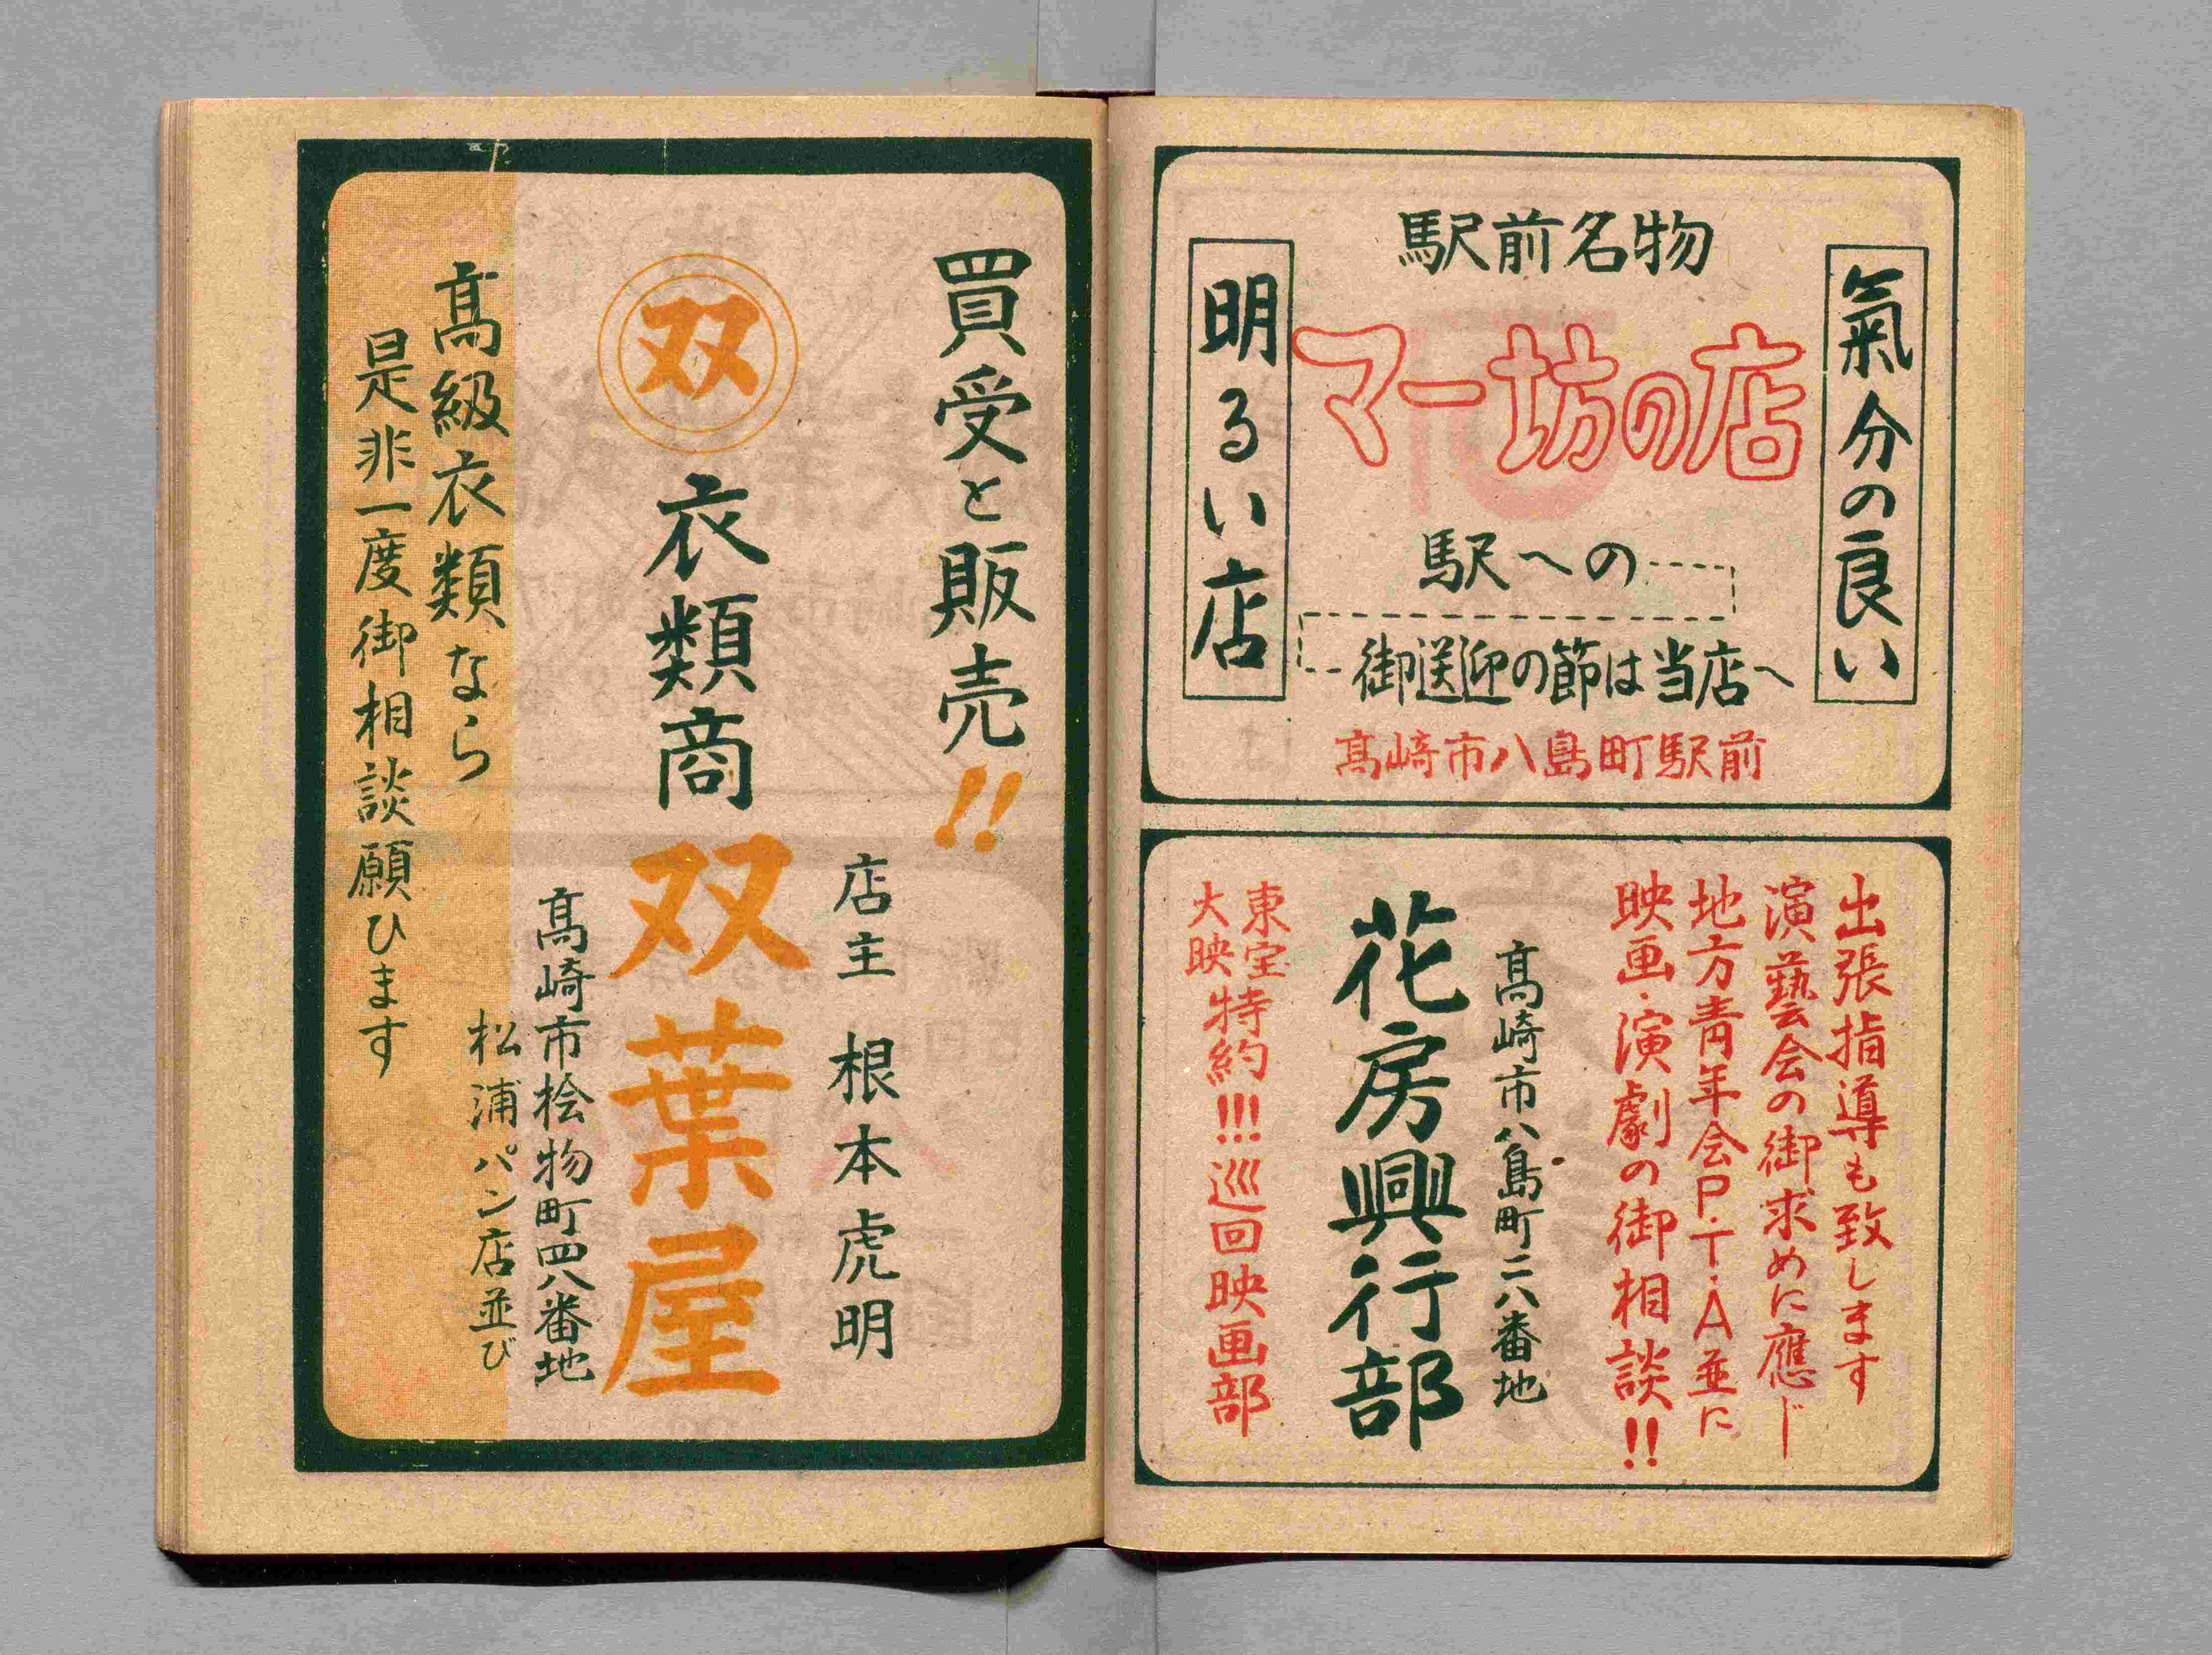 駅前名物
氣分の良い
マー坊の店
明るい店
駅への
御送迎の節は当店へ
髙崎市八島町駅前
出張指導も致します
演藝会の御求めに應じ
地方青年会P.T.A並に
映画・演劇の御相談!!
髙崎市八島町二八番地
花房興行部
東宝
大映
特約!!!巡回映画部
買受と販売!!
店主 根本虎明
双
衣類商 双葉屋
髙崎市桧物町四八番地
松浦パン店並び
髙級衣類なら
是非一度御相談願ひます